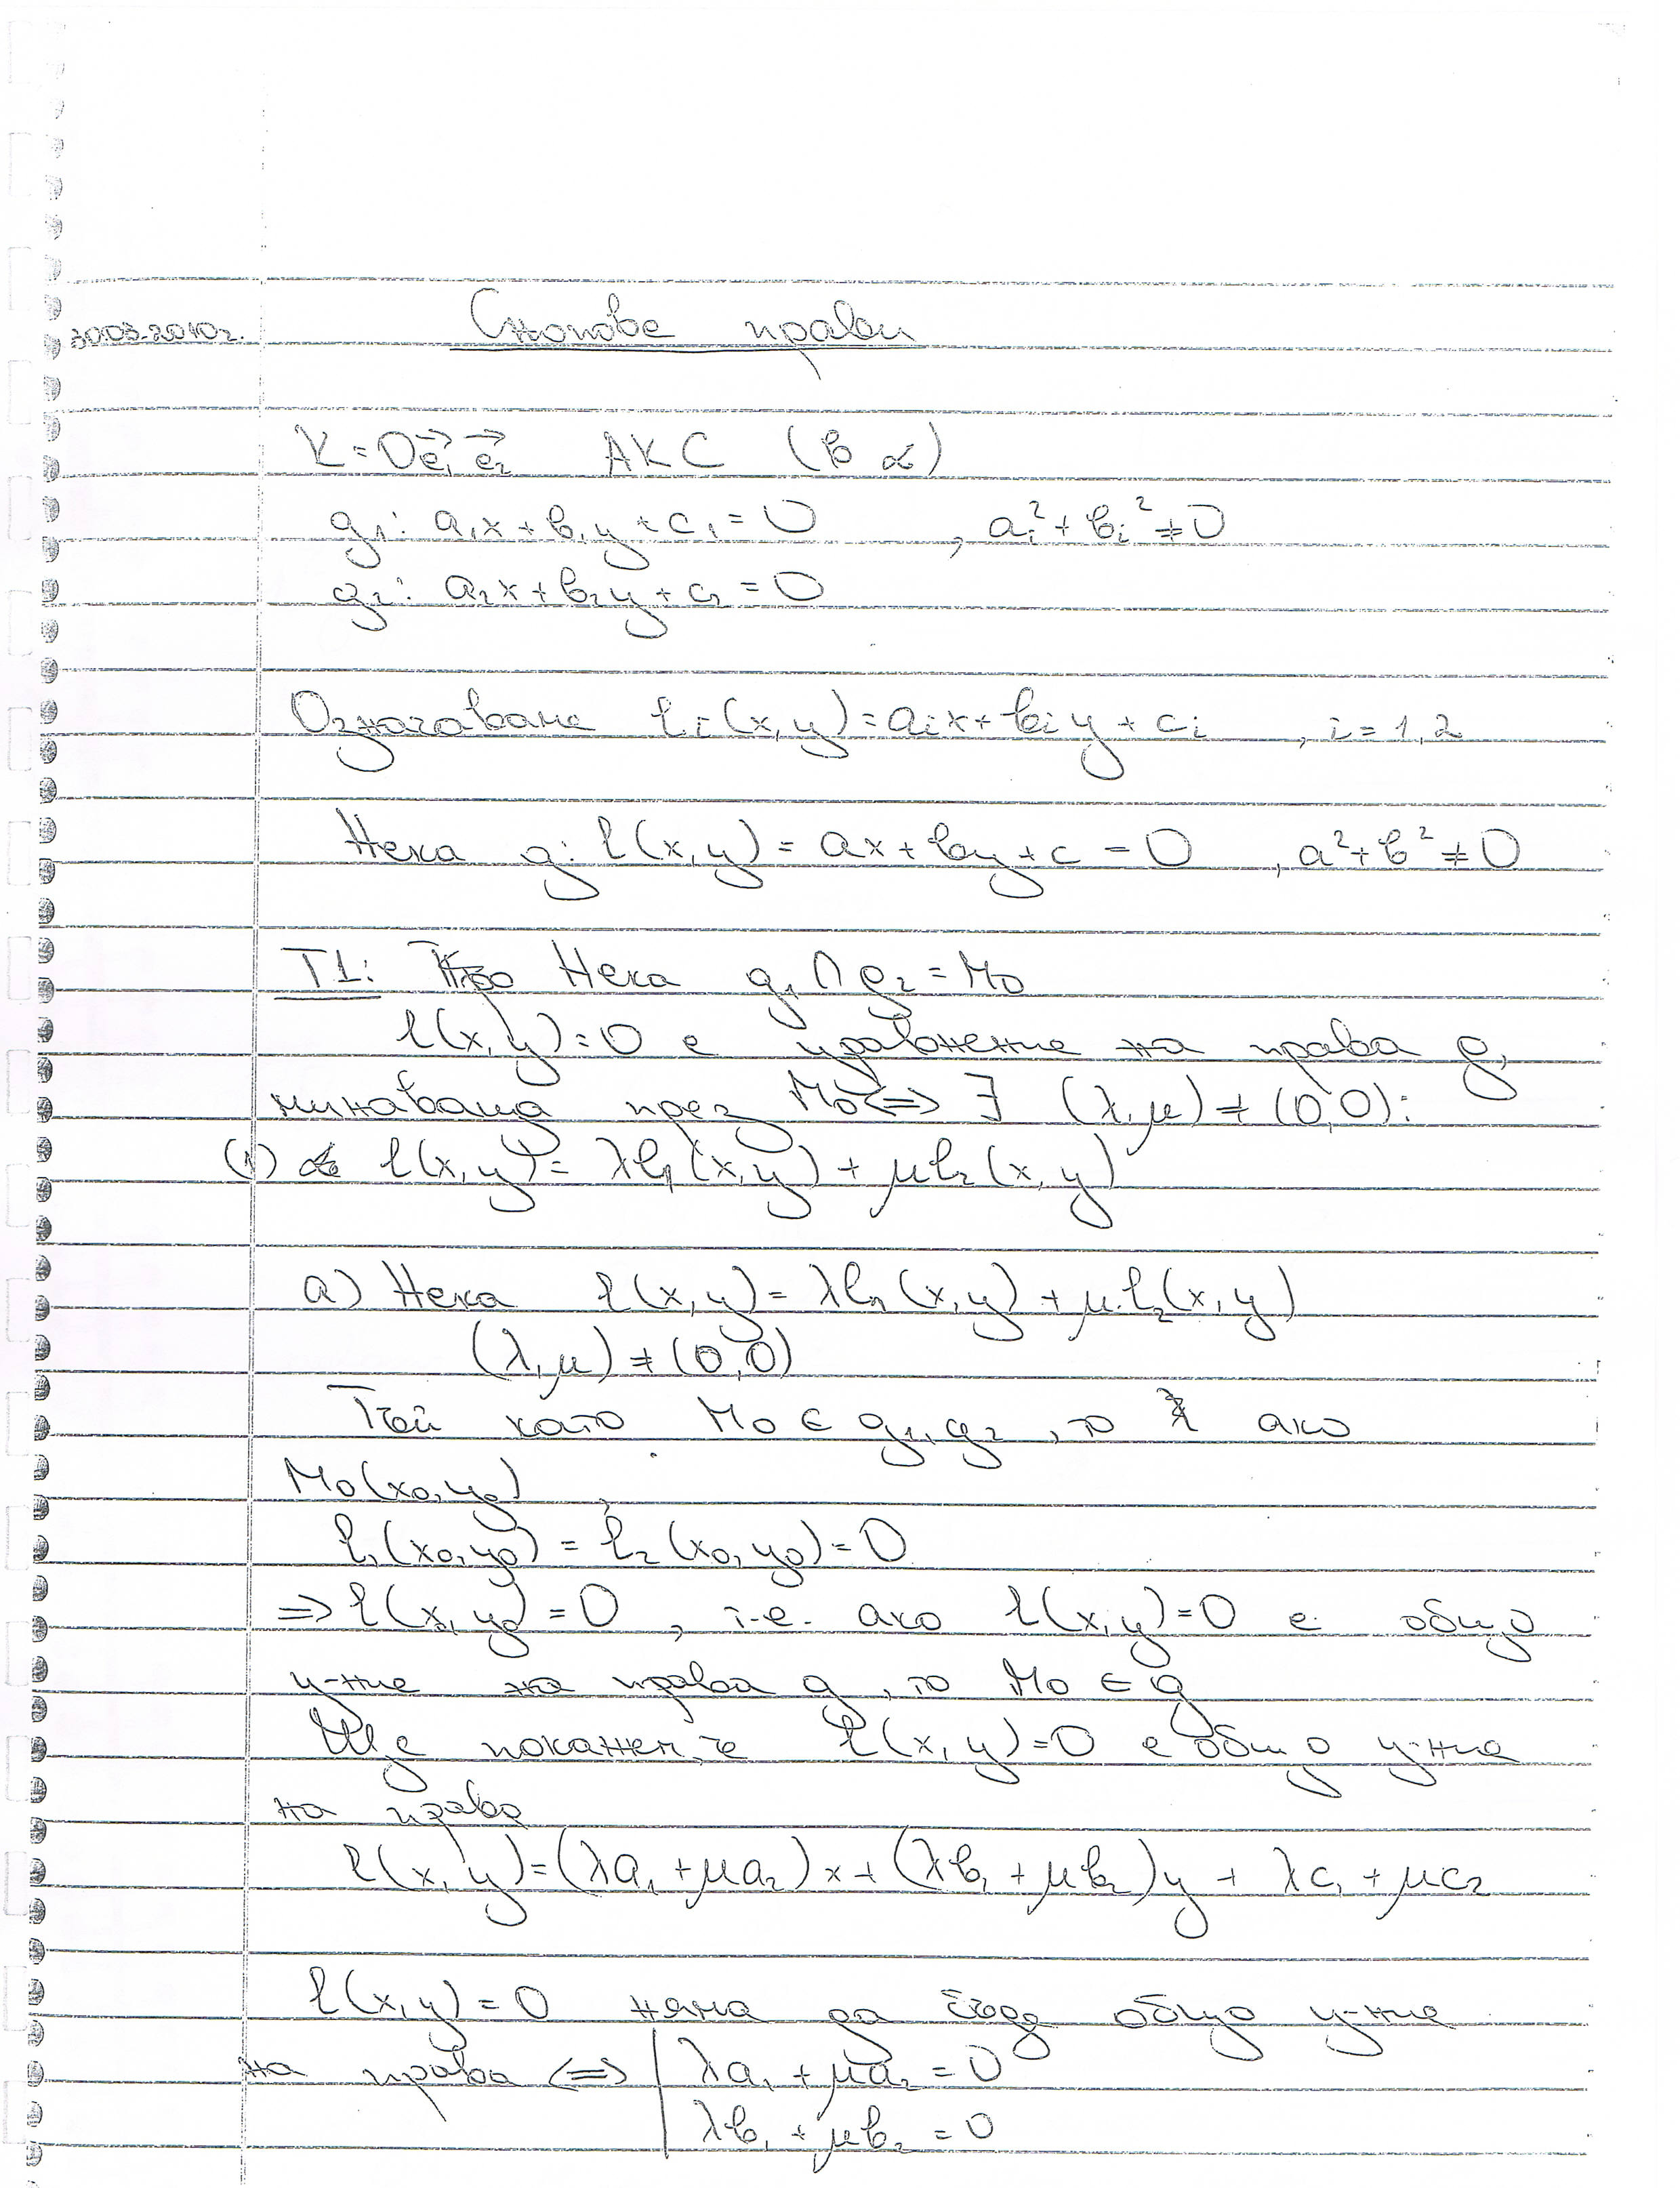 30.03.2010г.
Снопове прави
K = Oe⃗₁e⃗₂ АКС (в α)
g₁: a₁x + b₁y + c₁ = 0 , aᵢ² + bᵢ² ≠ 0
g₂: a₂x + b₂y + c₂ = 0
Означаваме lᵢ(x,y) = aᵢx + bᵢy + cᵢ , i = 1,2
Нека g: l(x,y) = ax + by + c = 0 , a² + b² ≠ 0
T1: Нека g₁ ∩ g₂ = M₀
l(x,y) = 0 е уравнение на права g,
минаваща през M₀ <=> ∃ (λ,μ) ≠ (0,0):
(1) l(x,y) = λl₁(x,y) + μl₂(x,y)
а) Нека l(x,y) = λl₁(x,y) + μ.l₂(x,y)
(λ,μ) ≠ (0,0)
Тъй като M₀ ∈ g₁,g₂ , то ако
M₀(x₀,y₀)
l₁(x₀,y₀) = l₂(x₀,y₀) = 0
=> l(x₀,y₀) = 0 , т.е. ако l(x,y) = 0 е общо
у-ние на права g , то M₀ ∈ g
Ще покажем, че l(x,y) = 0 е общо у-ние
на права
l(x,y) = (λa₁ + μa₂)x + (λb₁ + μb₂)y + λc₁ + μc₂
l(x,y) = 0 няма да бъде общо у-ние
на права <=> | λa₁ + μa₂ = 0
| λb₁ + μb₂ = 0